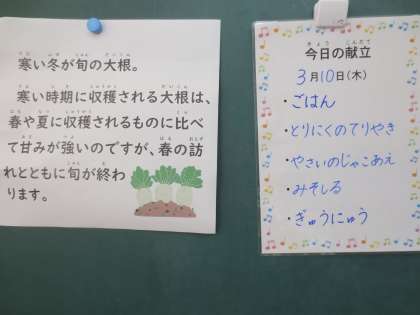 寒い冬が旬の大根。
寒い時期に収穫される大根は、
春や夏に収穫されるものに比べ
て甘みが強いのですが、春の訪
れとともに旬が終わ
ります。
今日の献立
3月10日(木)
・ごはん
・とりにくのてりやき
・やさいのじゃこあえ
・みそしる
・ぎゅうにゅう